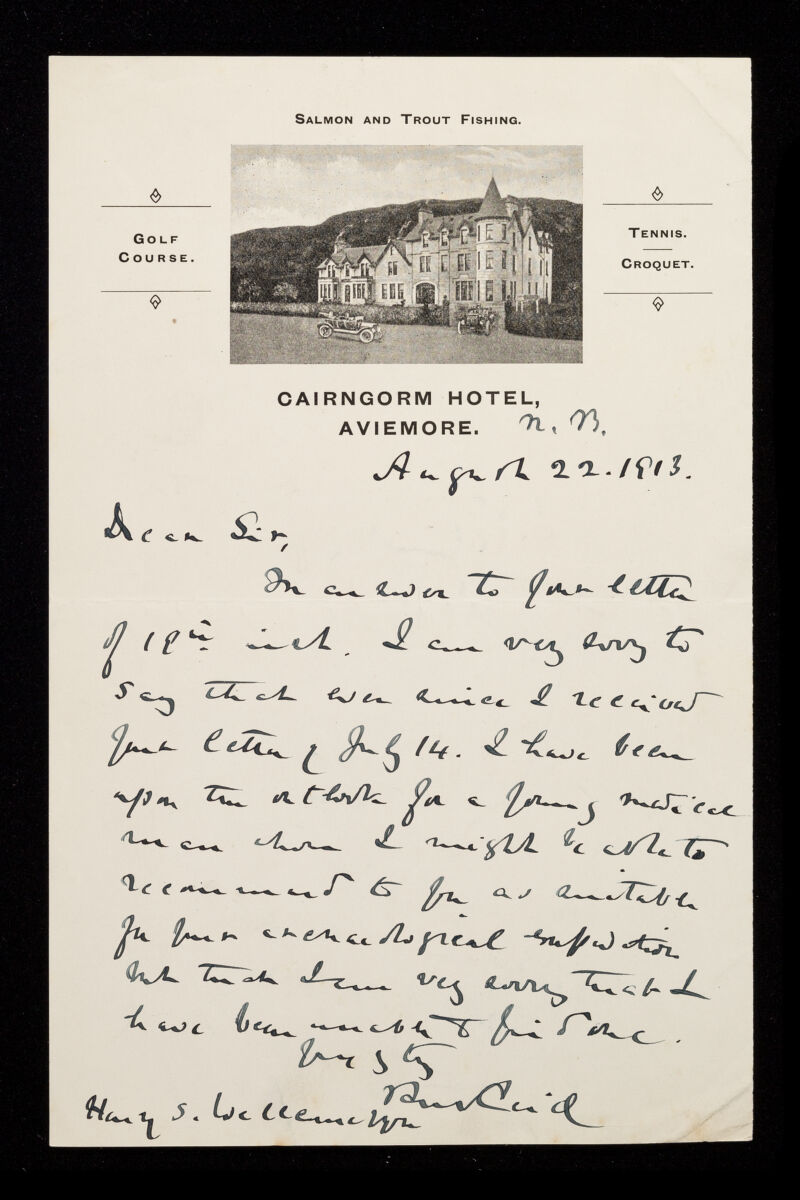 SALMON AND TROUT FISHING.
GOLF
COURSE.
TENNIS.
CROQUET.
CAIRNGORM HOTEL,
AVIEMORE. N. B.
August 22. 1913.
Dear Sir,
In answer to your letter
of 19th inst. I am very sorry to
say that ever since I received
your letter of July 14. I have been
upon the outlook for a young medical
man whom I might be able to
recommend to you as suitable
for your archaeological expedition
but that I am very sorry that I
have been unable to find one.
yours truly
Henry S. Wellcome Esqre